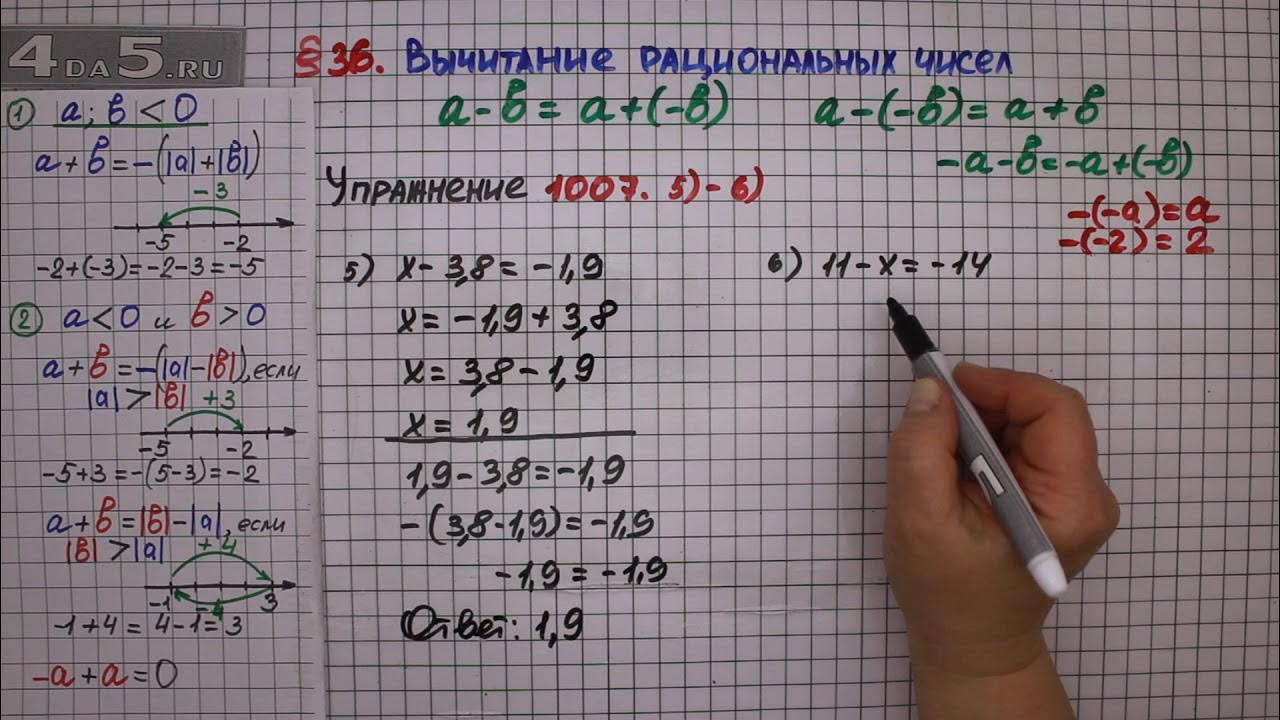 4DA5.RU
§36. Вычитание рациональных чисел
a - b = a + (-b)
a - (-b) = a + b
-a - b = -a + (-b)
-(-a) = a
-(-2) = 2
① a; b < 0
a + b = -(|a| + |b|)
-3
-5 -2
-2 + (-3) = -2 - 3 = -5
② a < 0 и b > 0
a + b = -(|a| - |b|), если
|a| > |b|
+3
-5 -2
-5 + 3 = -(5 - 3) = -2
a + b = |b| - |a|, если
|b| > |a|
+4
-1 -4 3
-1 + 4 = 4 - 1 = 3
-a + a = 0
Упражнение 1007. 5) - 6)
5) x - 3,8 = -1,9
x = -1,9 + 3,8
x = 3,8 - 1,9
x = 1,9
1,9 - 3,8 = -1,9
-(3,8 - 1,9) = -1,9
-1,9 = -1,9
Ответ: 1,9
6) 11 - x = -14